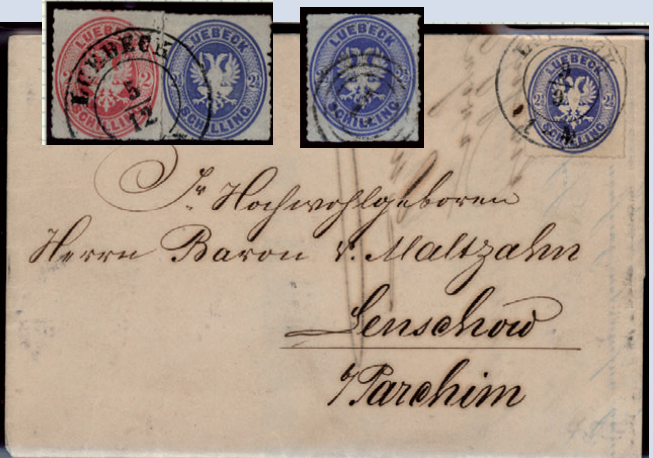 LUEBECK
SCHILLING
LUEBECK
5/12
LUEBECK
2½
SCHILLING
LUEBECK
SCHILLING
LUEBECK
2½
SCHILLING
Sr. Hochwohlgeboren
Herrn Baron v. Maltzahn
Lenschow
a/Parchim